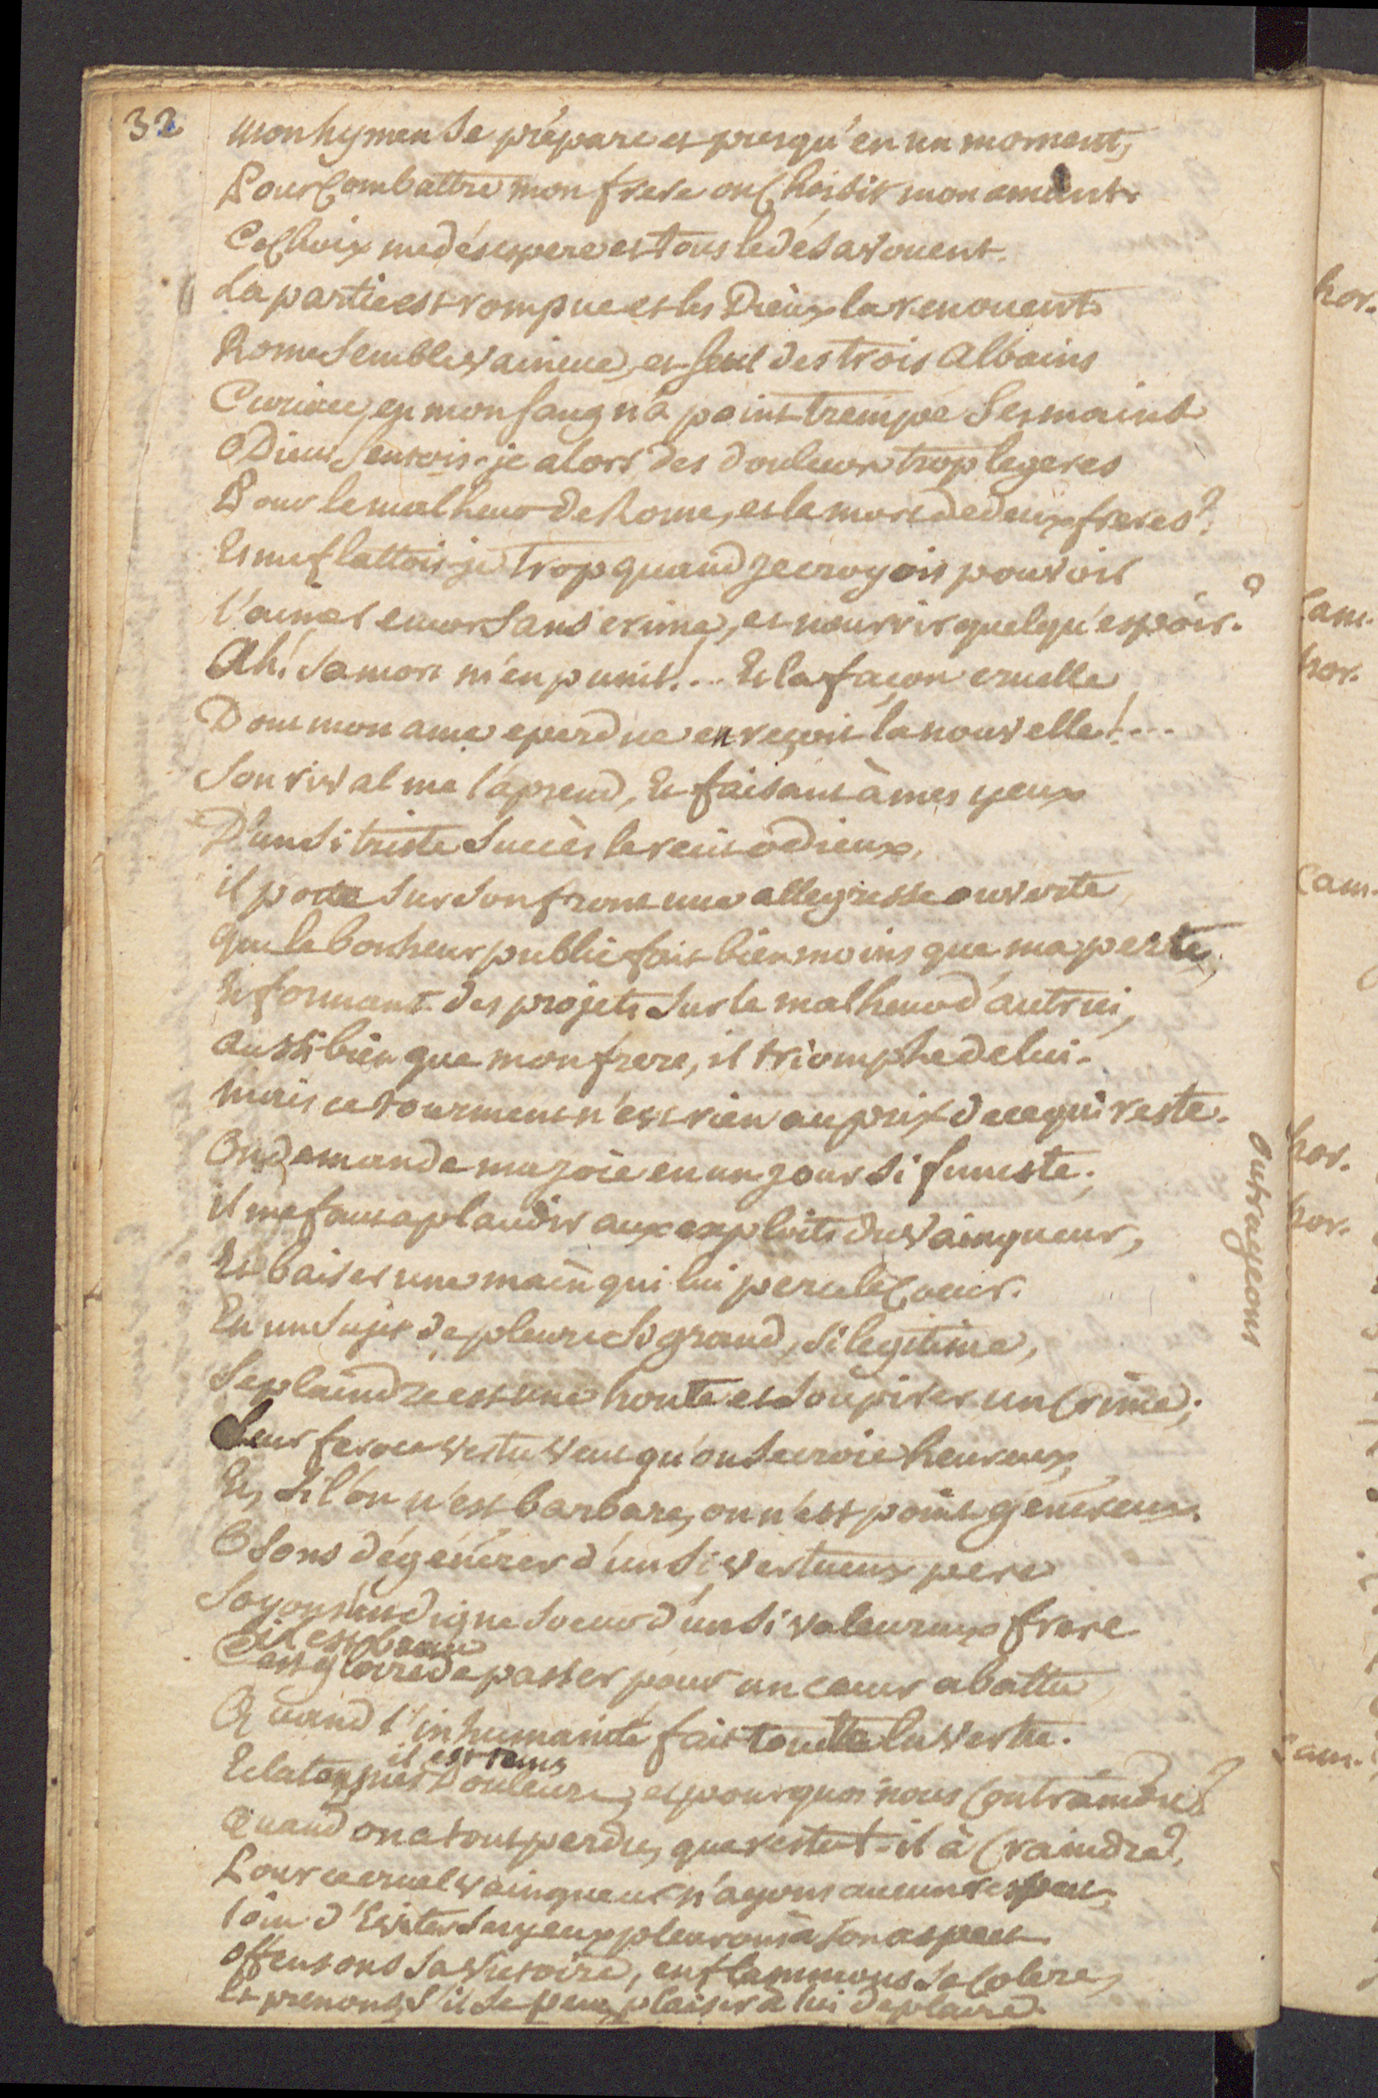 32
mon hymen se prépare et presqu'en un moment,
Pour Combattre mon frere on Choisit mon amant.
Ce Choix me désespere et tous le désavouent.
La partie est rompue et les Dieux la renouent.
Rome semble vaincue, et seul des trois albains
Curiace, en mon sang n'a point trempé ses mains
O Dieux sentois-je alors des douleurs trop legeres
Pour le malheur de Rome, et la mort de deux freres?
Et me flattois-je trop quand je croyois pouvoir
l'aimer encor sans crime, et nourrir quelqu'espoir?
Ah! sa mort m'en punit... Et la façon cruelle
Dont mon ame eperdue en reçoit la nouvelle!...
Son rival me l'aprend, Et faisant à mes yeux
D'un si triste succès le recit odieux,
il porte sur son front une allegresse ouverte
que le bonheur public fait bien moins que ma perte,
Et formant des projets sur le malheur d'autrui,
aussi bien que mon frere, il triomphe de lui.
mais ce tourment n'est rien au prix de ce qui reste.
On demande ma joie en un jour si funeste;
il me faut aplaudir aux exploits du vainqueur,
Et baiser une main qui lui perce le Coeur.
En un sujet de pleurs si grand, si legitime,
Se plaindre est une honte et soupirer un Crime;
Leur feroce vertu veut qu'on se croie heureux,
Et, si l'on n'est barbare, on n'est point généreux.
Osons dégénérer d'un si vertueux pere
Soyons indigne soeur d'un si valeureux frere
il est beau
C'est gloire de passer pour un cœur abattu
Quand l'inhumanité fait toutte la vertu.
il est tems
Eclatez mes Douleurs, et pourquoi nous Contraindre?
Quand on a tout perdu, que reste t-il à Craindre?
Pour ce cruel vainqueur n'ayons aucun respect,
loin d'Eviter ses yeux pleurons à son aspect
offensons sa victoire, enflammons sa Colere,
Et prenons, s'il se peut, plaisir à lui deplaire.
outrageons
hor.
Cam.
hor.
Cam.
hor.
hor.
Cam.